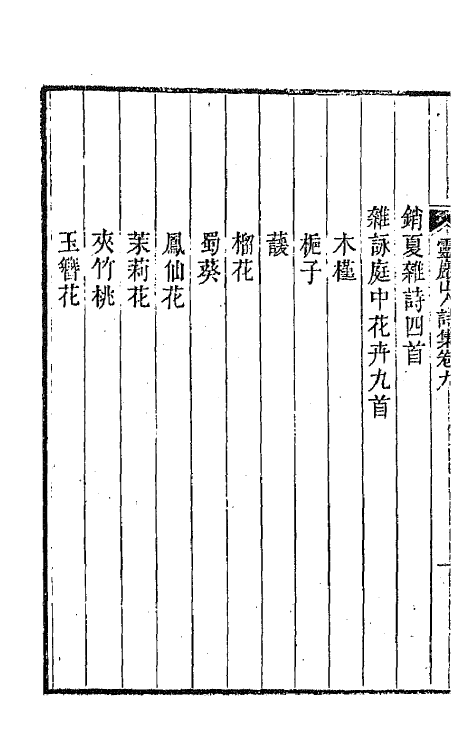 靈巖山人詩集卷九
銷夏雜詩四首
雜詠庭中花卉九首
木槿
梔子
萲
榴花
蜀葵
鳳仙花
茉莉花
夾竹桃
玉簪花